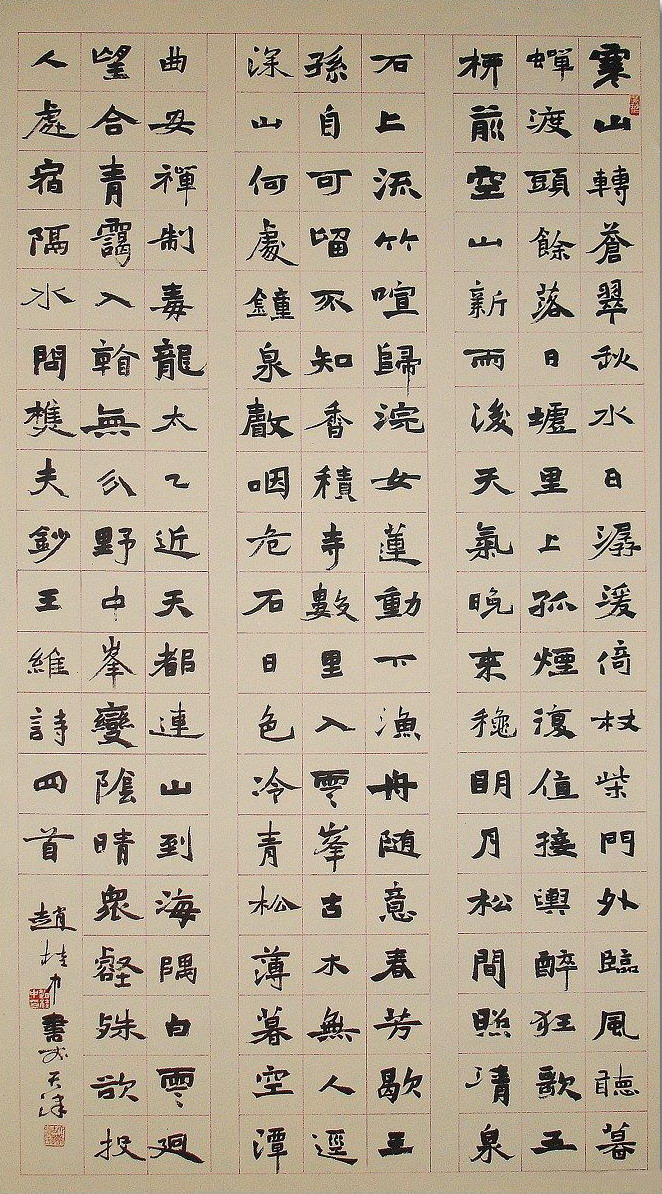 寒山轉蒼翠秋水日潺湲倚杖柴門外臨風聽暮
蟬渡頭餘落日墟里上孤煙復值接輿醉狂歌五
柳前空山新雨後天氣晚來穐明月松間照清泉
石上流竹喧歸浣女蓮動下漁舟随意春芳歇王
孫自可留不知香積寺數里入雲峯古木無人逕
深山何處鐘泉聲咽危石日色冷青松薄暮空潭
曲安禪制毒龍太乙近天都連山到海隅白雲迴
望合青靄入看無分野中峯變陰晴衆壑殊欲投
人處宿隔水問樵夫鈔王維詩四首
趙桂中書於天津